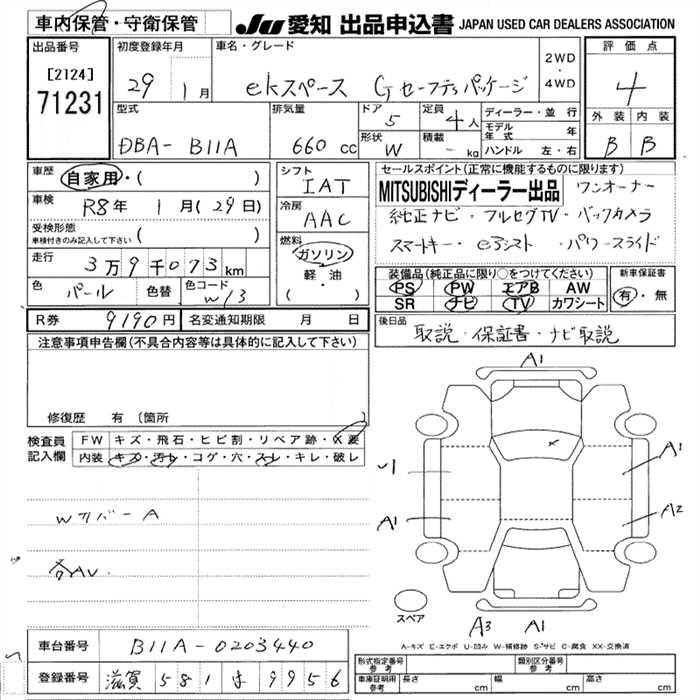 車内保管・守衛保管
JU 愛知 出品申込書 JAPAN USED CAR DEALERS ASSOCIATION
出品番号
[2124]
71231
初度登録年月
29 1月
車名・グレード
ekスペース Gセーフティパッケージ
2WD
・
4WD
評価点
4
外装 内装
B B
型式
DBA- B11A
排気量
660 cc
ドア
5
形状
W
定員
4人
積載
- kg
ディーラー・並行
モデル年式 年
ハンドル 左・右
車歴
自家用・( )
車検
R8年 1月(29日)
受検形態
車検付きのみ記入して下さい ( )
走行
3万9千073km
色
パール
色替
色コード
W13
シフト
IAT
冷房
AAC
燃料
ガソリン
軽・油
( )
セールスポイント(正常に機能するものに限ります)
MITSUBISHIディーラー出品 ワンオーナー
純正ナビ・フルセグTV・バックカメラ
スマートキー・e3シスト・パワースライド
装備品(純正品に限り○をつけてください)
PS PW エアB AW
SR ナビ TV カワシート
新車保証書
有・無
R券 9190円
名変通知期限 月 日
後日品
取説・保証書・ナビ取説
注意事項申告欄(不具合内容等は具体的に記入して下さい)
修復歴 有(箇所
検査員
記入欄
FW キズ・飛石・ヒビ割・リペア跡・X要
内装 キズ・汚レ・コゲ・穴・スレ・キレ・破レ
Wカバー A
各AU
A1
A1
A1
A2
A3 A1
スペア
A-キズ E-エクボ U-凹み W-補修跡 S-サビ C-腐食 XX-交換済
車台番号 B11A-0203440
登録番号 滋賀 581 ほ 9956
形式指定番号
参考
類別区分番号
参考
車庫証明用
参考
長さ cm 幅 cm 高さ cm